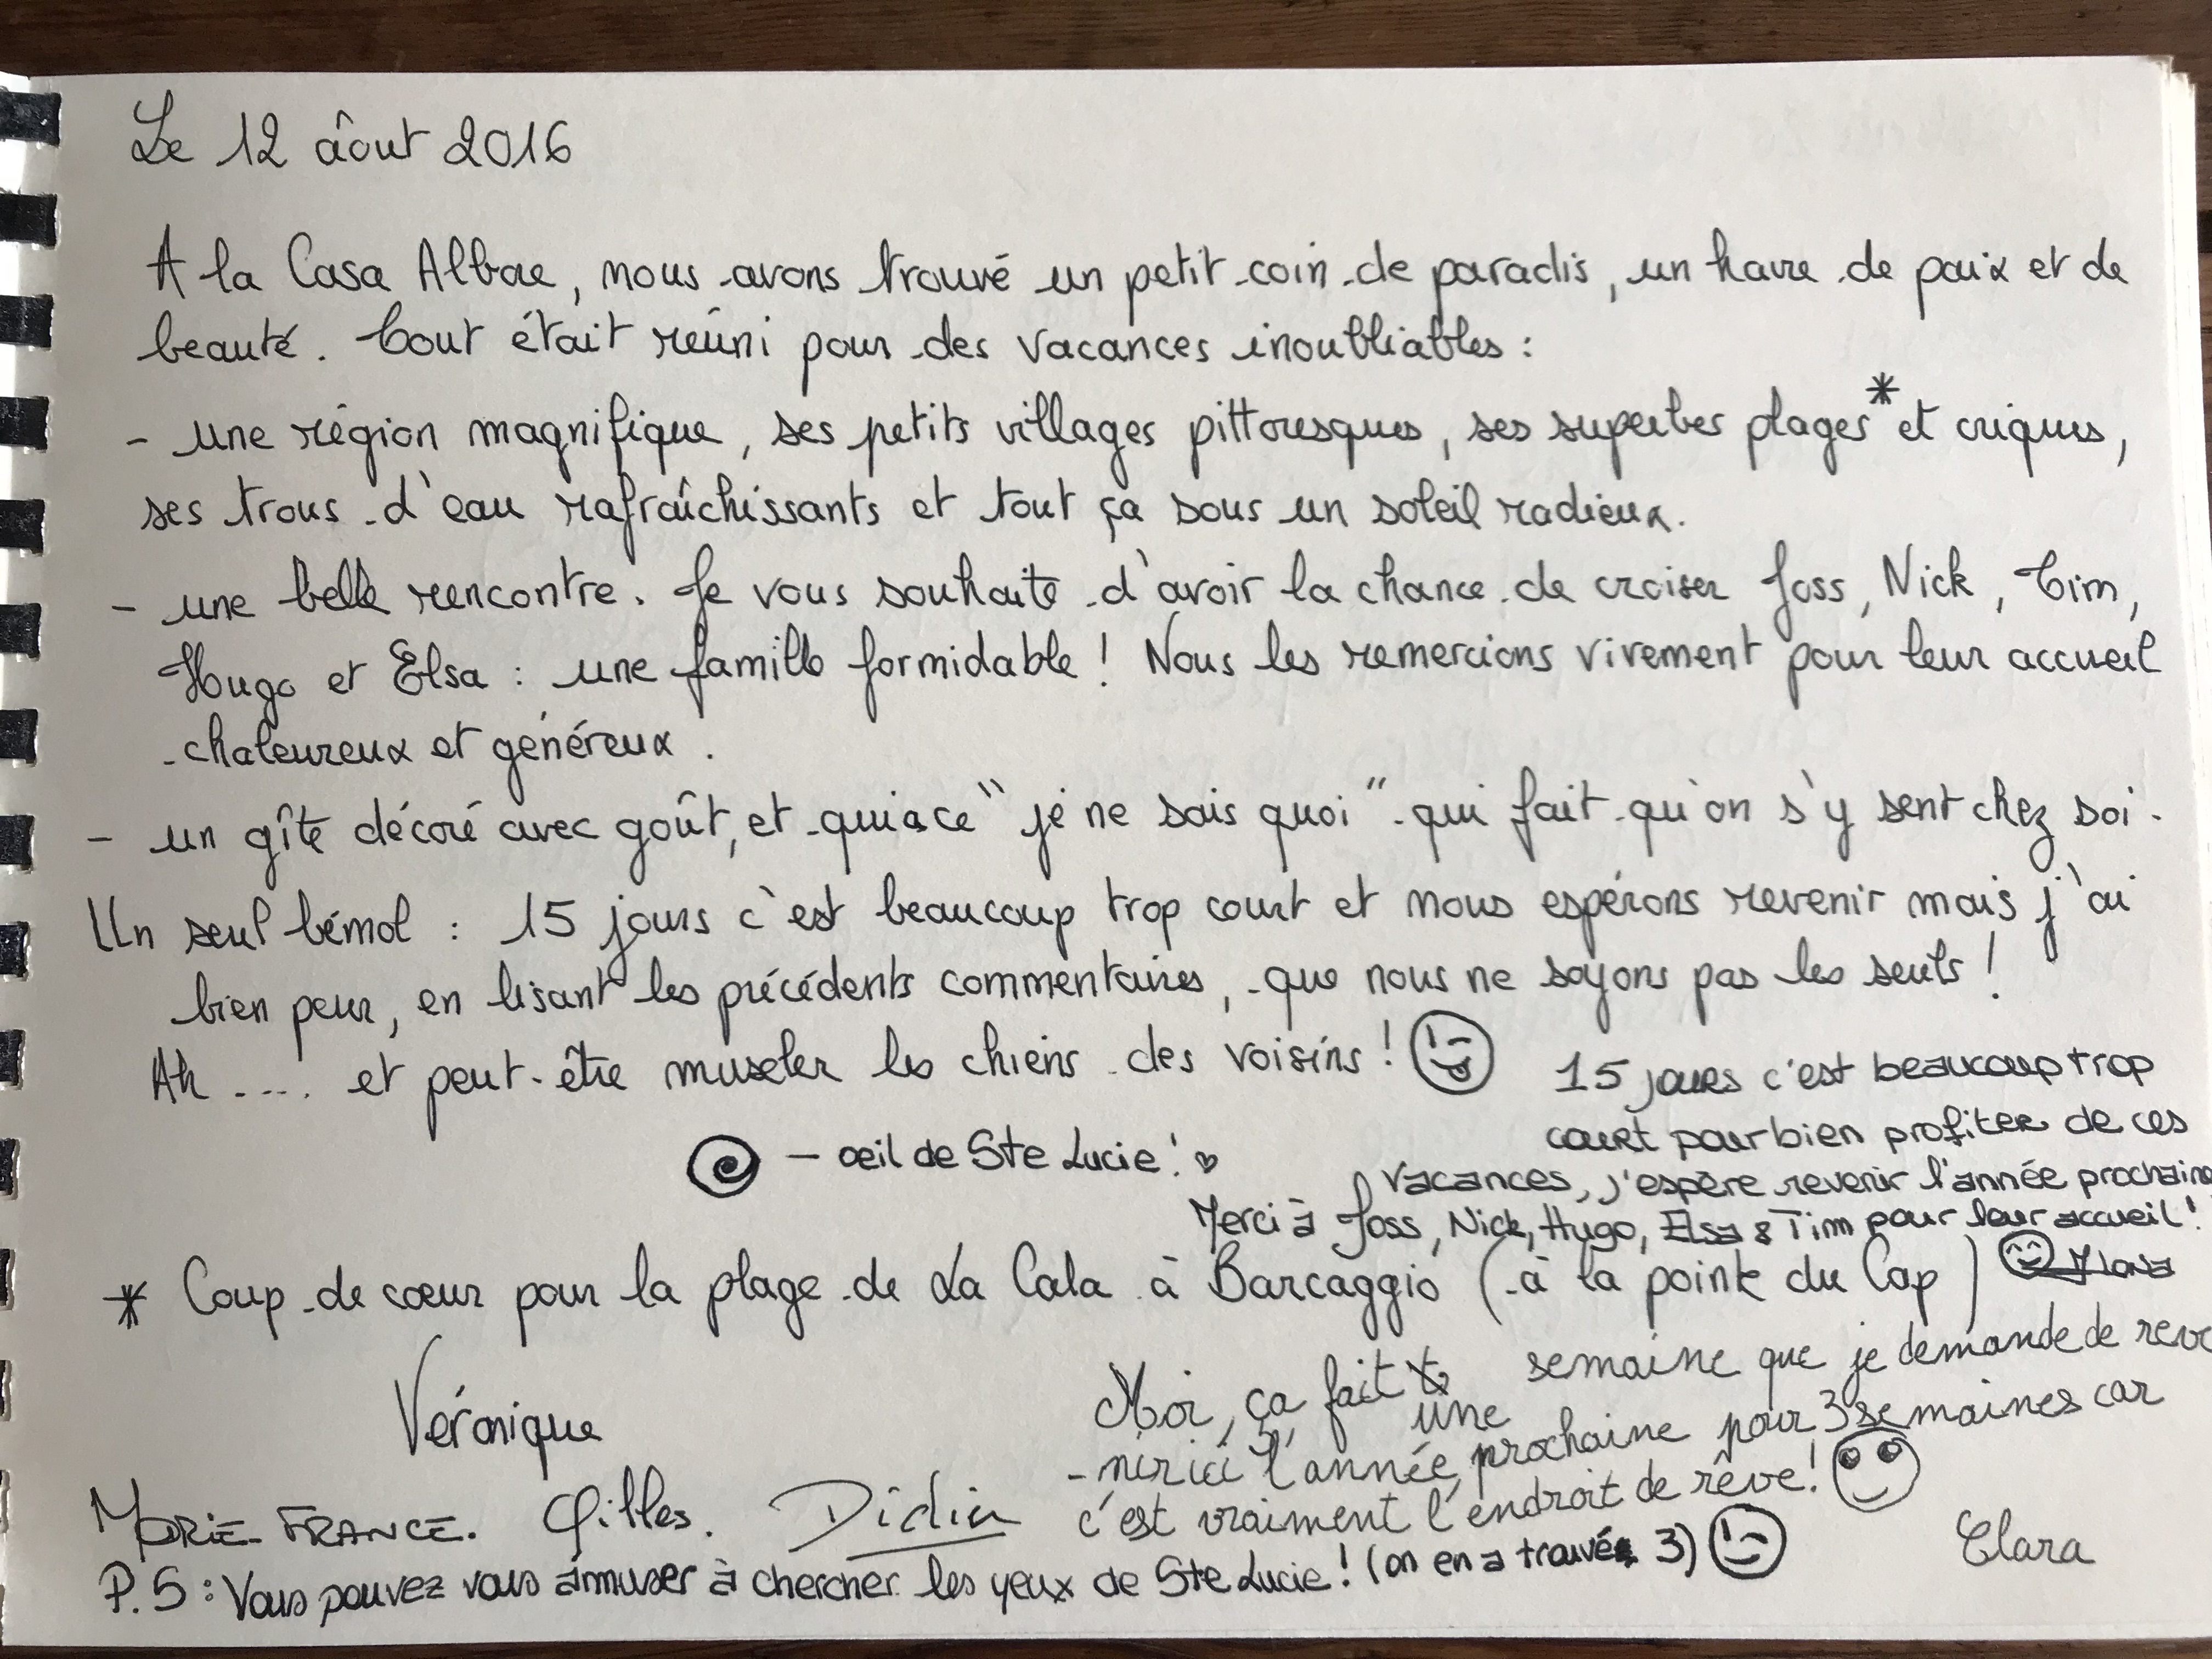 Le 12 âout 2016
A la Casa Albae, nous avons trouvé un petit coin de paradis, un havre de paix et de
beauté. Tout était réuni pour des vacances inoubliables :
- une région magnifique, ses petits villages pittoresques, ses superbes plages* et criques,
ses trous d'eau rafraîchissants et tout ça sous un soleil radieux.
- une belle rencontre. Je vous souhaite d'avoir la chance de croiser Joss, Nick, Tim,
Hugo et Elsa : une famille formidable ! Nous les remercions vivement pour leur accueil
chaleureux et généreux.
- un gîte décoré avec goût, et qui a ce "je ne sais quoi" qui fait qu'on s'y sent chez soi.
Un seul bémol : 15 jours c'est beaucoup trop court et nous espérons revenir mais j'ai
bien peur, en lisant les précédents commentaires, que nous ne soyons pas les seuls !
Ah .... et peut-être museler les chiens des voisins !
15 jours c'est beaucoup trop
court pour bien profiter de ces
vacances, j'espère revenir l'année prochaine
Merci à Joss, Nick, Hugo, Elsa & Tim pour leur accueil !
- oeil de Ste Lucie !
* Coup de cœur pour la plage de La Cala à Barcaggio (à la pointe du Cap)
Véronique
Moi, ça fait une semaine que je demande de reve
-nir ici l'année prochaine pour 3 semaines car
c'est vraiment l'endroit de rêve !
Clara
MARIE-FRANCE. Gilles. Didier
P.S : Vous pouvez vous amuser à chercher les yeux de Ste Lucie ! (on en a trouvé 3)